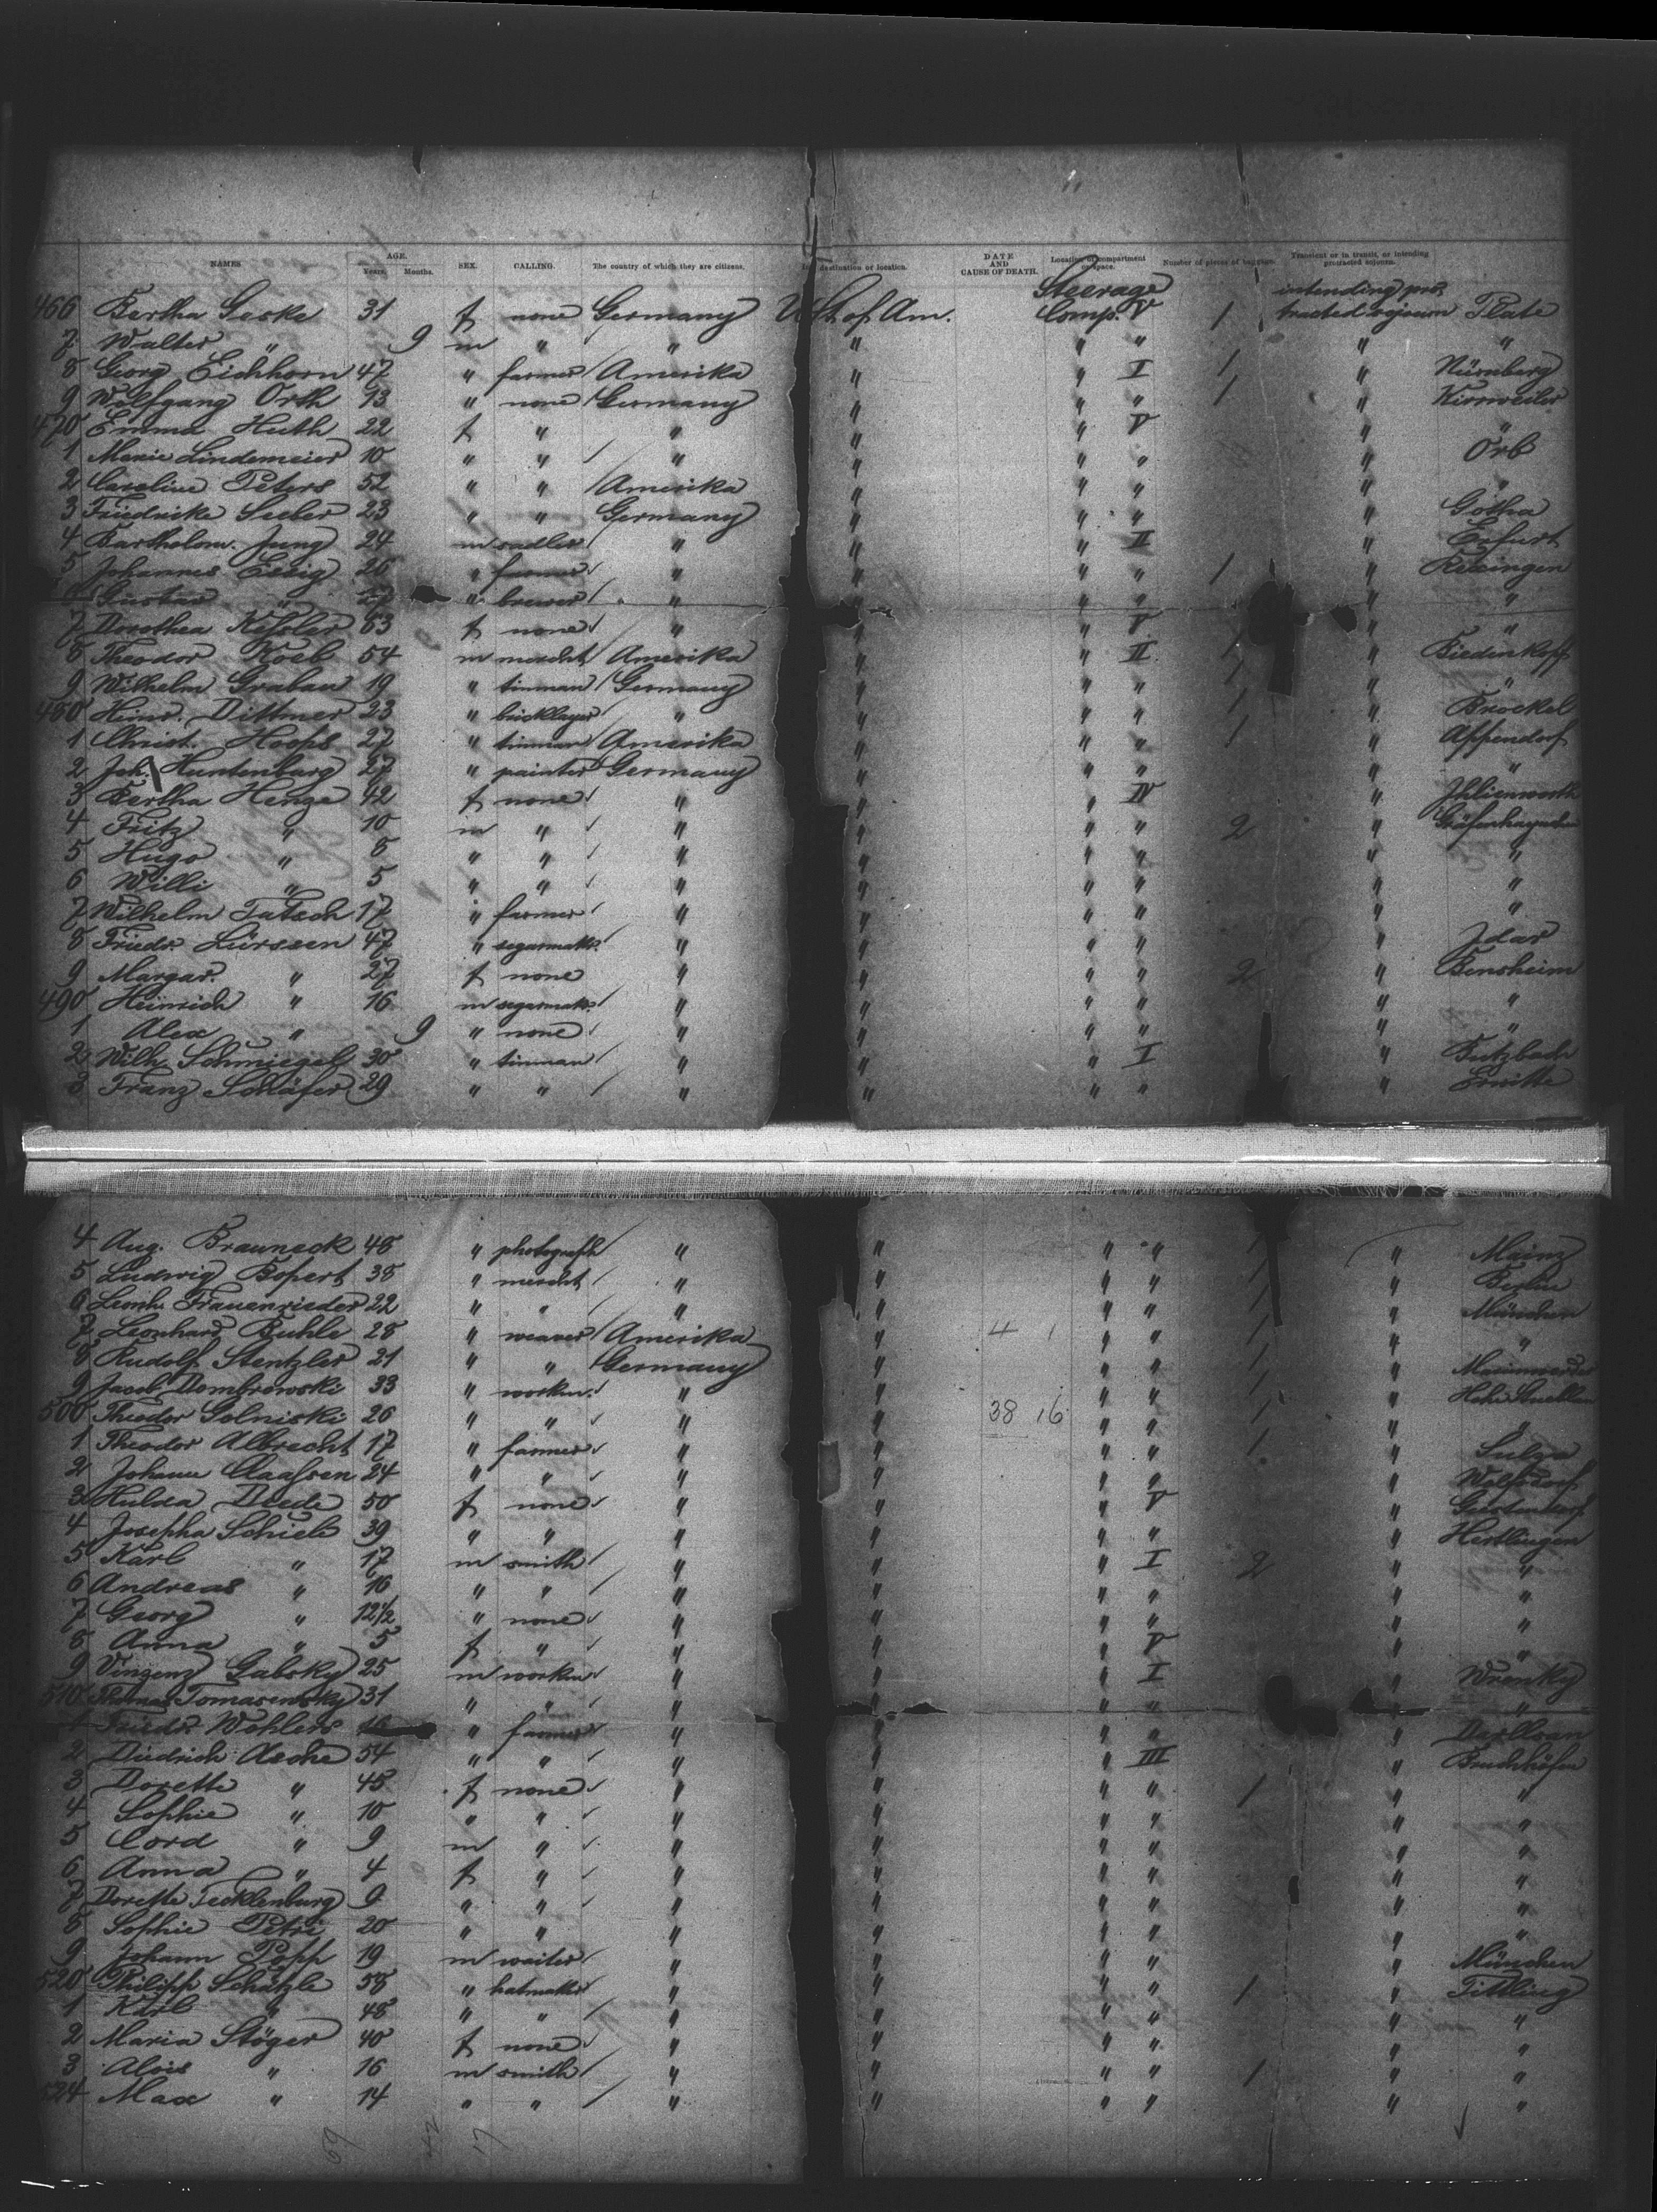 NAMES. AGE. Years. Months. SEX. CALLING. The country of which they are citizens. destination or location. DATE AND CAUSE OF DEATH. Location of compartment or space. Number of pieces of baggage. Transient or in transit, or intending protracted sojourn.
Steerage intending pro-
466 Bertha Geske 31 f none Germany U. St. of Am. Comp. V 1 tracted sojourn Plate
7 Walter " 9 m " " " " " " "
8 Georg Eichhorn 47 " farmer Amerika " " I 1 " Nürnberg
9 Wolfgang Orth 73 " none Germany " " " 1 " Kirrweiler
470 Emma Huth 22 f " " " " V " "
1 Marie Lindemeier 10 " " " " " " " Orb
2 Caroline Peters 52 " " Amerika " " " " "
3 Friedricke Seeber 23 " " Germany " " " " Gotha
4 Bartholom. Jung 24 m sadler " " " II " Erfurt
5 Johannes Essig 26 " farmer " " " " 1 "
6 Gustav " 27 " brewer " " " " " "
7 Dorothea Kessler 63 f none " " " V " "
8 Theodor Koeb 54 m mercht Amerika " " II 1 " Biedenkopf
9 Wilhelm Grabau 19 " tinman Germany " " " 1 " "
480 Heinr. Dittmer 23 " bricklayer " " " " 1 " Brockel
1 Christ. Hoops 27 " tinman Amerika " " " 1 " Appendorf
2 Joh. Huntenburg 27 " painter Germany " " " " "
3 Bertha Henze 42 f none " " " IV " Ihlienworth
4 Fritz " 10 m " " " " " 2 "
5 Hugo " 8 " " " " " " " "
6 Willi " 5 " " " " " " " "
7 Wilhelm Tatsch 17 " farmer " " " " " "
8 Friedr. Lürssen 47 " segarmakr. " " " " " Idar
9 Margar. " 27 f none " " " " 2 " Bensheim
490 Heinrich " 16 m segarmakr. " " " " " "
1 Alex " 9 " none " " " " " "
2 Wilh. Schmiegel 30 " tinman " " " I " Butzbach
3 Franz Schäfer 29 " " " " " " " Erwitte
4 Aug. Brauneck 48 " photograph " " " " 1 " Mainz
5 Ludwig Bopert 38 " mercht " " " " 1 " Berlin
6 Leonh. Frauenrieder 22 " " " " " " 1 " München
7 Leonhard Buhle 28 " weaver Amerika " 4 1 " " 1 " "
8 Rudolf Stentzler 21 " " Germany " " " 1 "
9 Jacob Dombrowski 33 " workm. " " " " 1 "
500 Theodor Golniski 26 " " " " 38 16 " " 1 " "
1 Theodor Albrecht 17 " farmer " " " " 1 "
2 Johann Claassen 24 " " " " " " " Wolfsdorf
3 Hulda Diede 50 f none " " " V "
4 Josepha Schiele 39 " " " " " " " Hertlingen
5 Karl " 17 m smith " " " I 2 " "
6 Andreas " 16 " " " " " " " "
7 Georg " 12 1/2 " none " " " " " "
8 Anna " 5 f " " " " V " "
9 Vinzenz Gabsky 25 m workm " " " I " Wronky
510 Thomas Tomasensky 31 " " " " " " " "
1 Friedr. Wohlers 16 " farmer " " " " "
2 Diedrich Asche 54 " " " " " III " Bruchhöfen
3 Dorette " 45 f none " " " " 1 " "
4 Sophie " 10 " " " " " " " "
5 Cord " 9 m " " " " " " "
6 Anna " 4 f " " " " " " "
7 Dorette Tecklenburg 9 " " " " " " " "
8 Sophie Petri 20 " " " " " " " "
9 Johann Popp 19 m waiter " " " " " München
520 Philipp Schätzle 58 " hatmaker " " " " 1 " Tittling
1 Karl " 48 " " " " " " " "
2 Maria Stöger 40 f none " " " " " "
3 Alois " 16 m smith " " " " 1 " "
524 Max " 14 " " " " " " " "
59 42 17